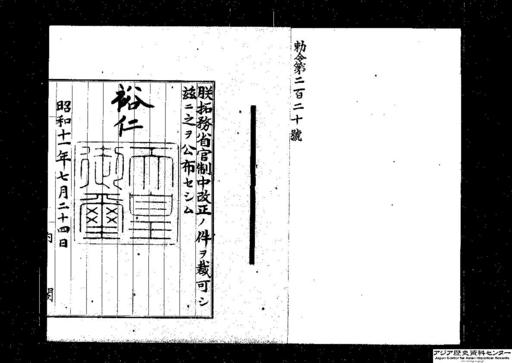 勅令第二百二十號
朕拓務省官制中改正ノ件ヲ裁可シ
茲ニ之ヲ公布セシム
裕仁
天皇御璽
昭和十一年七月二十四日
内閣
アジア歴史資料センター
Japan Center for Asian Historical Records